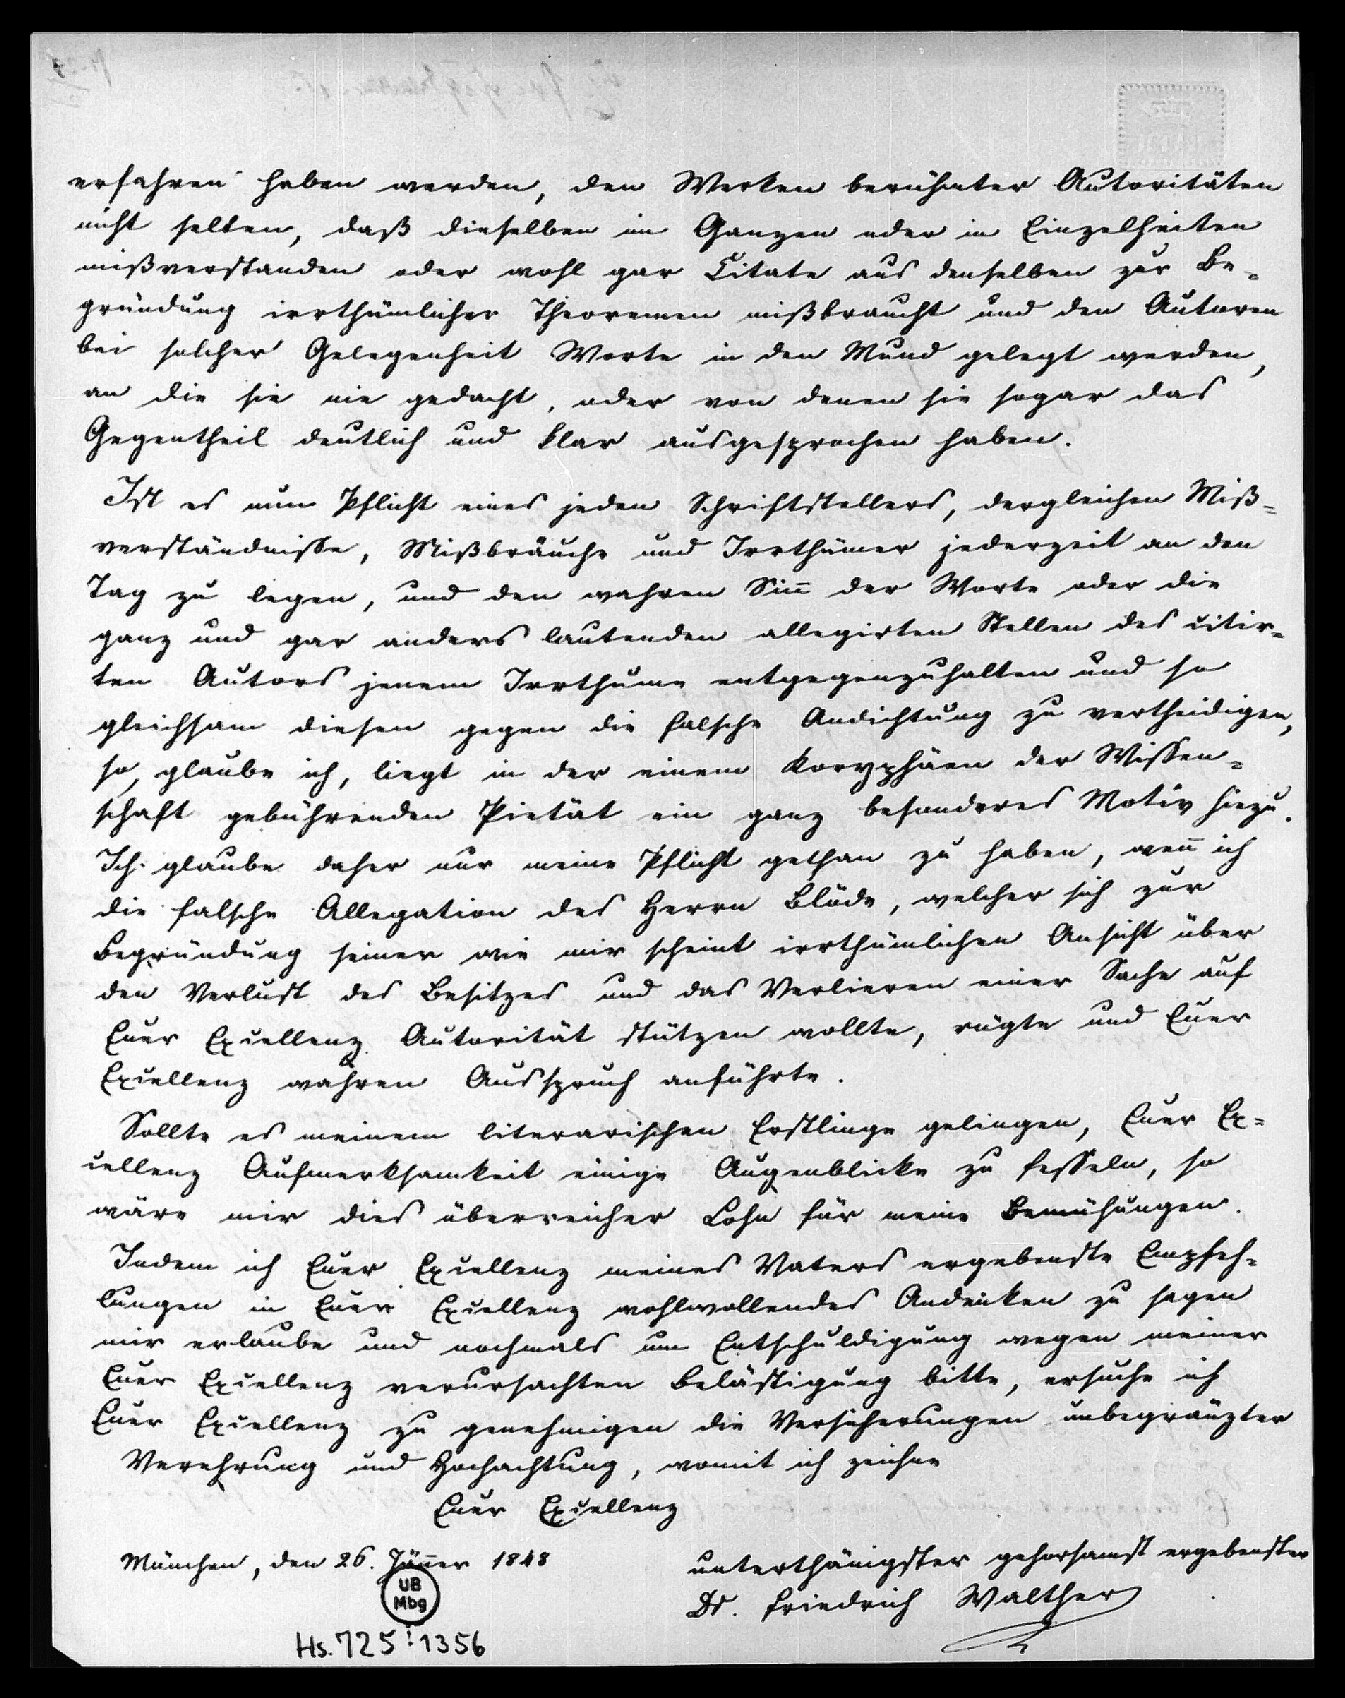 erfahren haben werden, den Werken berühmter Autoritäten
nicht selten, daß dieselben im Ganzen oder in Einzelheiten
mißverstanden oder wohl gar Citate aus denselben zur Be-
gründung irrthümlicher Theoremen mißbraucht und den Autoren
bei solcher Gelegenheit Worte in den Mund gelegt werden,
an die sie nie gedacht, oder von denen sie sogar das
Gegentheil deutlich und klar ausgesprochen haben.
Ist es nun Pflicht eines jeden Schriftstellers, dergleichen Miß-
verständnisse, Mißbräuche und Irrthümer jederzeit an den
Tag zu legen, und den wahren Sin̄ der Worte oder die
ganz und gar anders lautenden allegirten Stellen des citir-
ten Autors jenem Irrthume entgegenzuhalten und so
gleichsam diesen gegen die falsche Andichtung zu vertheidigen,
so, glaube ich, liegt in der einem Koryphäen der Wissen-
schaft gebührenden Pietät ein ganz besonderes Motiv hiezu.
Ich glaube daher nur meine Pflicht gethan zu haben, wen̄ ich
die falsche Allegation des Herrn Blöde, welcher sich zur
Begründung seiner wie mir scheint irrthümlichen Ansicht über
den Verlust des Besitzes und das Verlieren einer Sache auf
Euer Excellenz Autorität stützen wollte, rügte und Euer
Excellenz wahren Ausspruch anführte.
Sollte es meinem literarischen Erstlinge gelingen, Euer Ex-
cellenz Aufmerksamkeit einige Augenblicke zu fesseln, so
wäre mir dies überreicher Lohn für meine Bemühungen.
Indem ich Euer Excellenz meines Vaters ergebenste Empfeh-
lungen in Euer Excellenz wohlwollendes Andenken zu sagen
mir erlaube und nochmals um Entschuldigung wegen meiner
Euer Excellenz verursachten Belästigung bitte, ersuche ich
Euer Excellenz zu genehmigen die Versicherungen unbegränzter
Verehrung und Hochachtung, womit ich zeichne
Euer Excellenz
München, den 26. Jän̄er 1848
unterthänigster gehorsamst ergebenster
Dr. Friedrich Walther
UB
Mbg
Hs. 725:1356